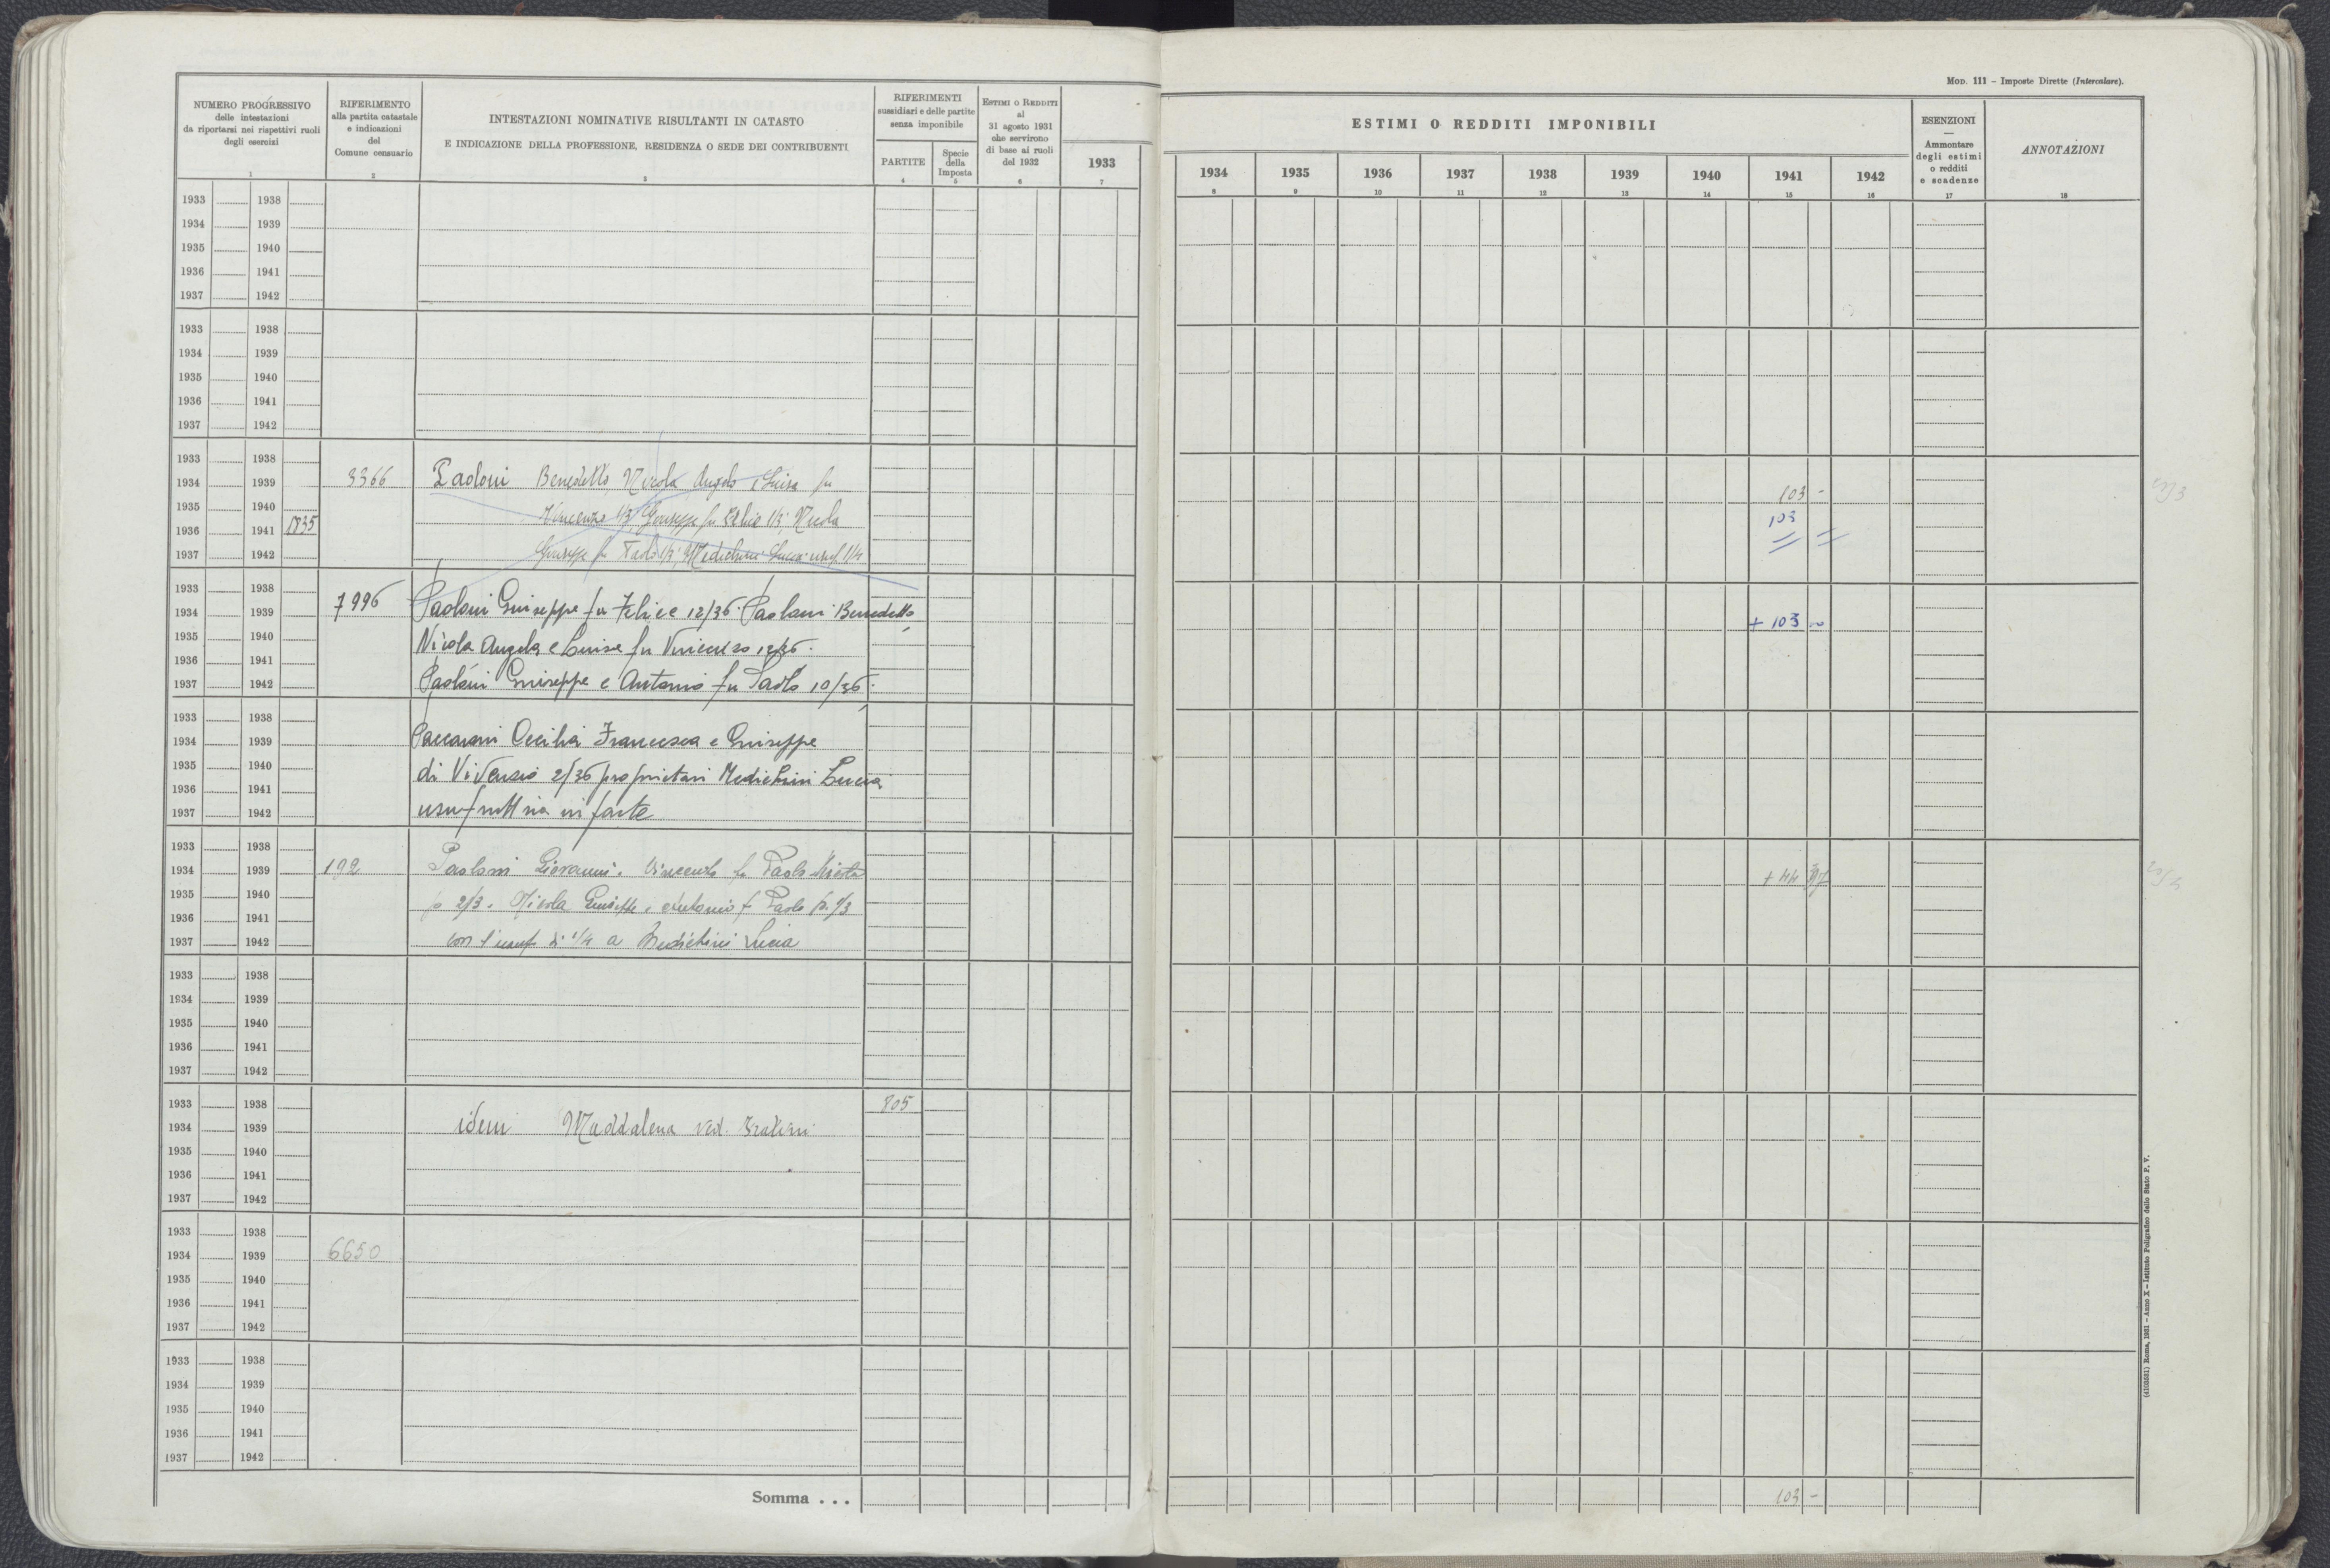 MOD. 111 – Imposte Dirette (Intercalare).
NUMERO PROGRESSIVO
delle intestazioni
da riportarsi nei rispettivi ruoli
degli esercizi
1
RIFERIMENTO
alla partita catastale
e indicazioni
del
Comune censuario
2
INTESTAZIONI NOMINATIVE RISULTANTI IN CATASTO
E INDICAZIONE DELLA PROFESSIONE, RESIDENZA O SEDE DEI CONTRIBUENTI
3
RIFERIMENTI
sussidiari e delle partite
senza imponibile
PARTITE
4
Specie
della
Imposta
5
ESTIMI O REDDITI
al
31 agosto 1931
che servirono
di base ai ruoli
del 1932
6
ESTIMI O REDDITI IMPONIBILI
1933 1934 1935 1936 1937 1938 1939 1940 1941 1942
7 8 9 10 11 12 13 14 15 16
ESENZIONI
—
Ammontare
degli estimi
o redditi
e scadenze
17
ANNOTAZIONI
18
1933 1938
1934 1939
1935 1940
1936 1941
1937 1942
1933 1938
1934 1939
1935 1940
1936 1941
1937 1942
1933 1938
1934 1939 3366 Paoloni Benedetto, Nicola Angela e Luisa fu 103 -
1935 1940 Vincenzo 1/3, Giuseppe fu Felice 1/3; Nicola 103
1936 1941 1835
1937 1942 Giuseppe fu Paolo 1/3; Medichini Lucia usuf. 1/4
1933 1938
1934 1939 7996 Paoloni Giuseppe fu Felice 12/36. Paoloni Benedetto, + 103
1935 1940 Nicola Angela e Luisa fu Vincenzo 12/36.
1936 1941
1937 1942 Paoloni Giuseppe e Antonio fu Paolo 10/36.
1933 1938
1934 1939 Paccaroni Cecilia Francesca e Giuseppe
1935 1940 di Vivenzio 2/36 proprietari Medichini Lucia
1936 1941
1937 1942 usufruttria in parte
1933 1938
1934 1939 192 Paoloni Giovanni e Vincenzo fu Paolo Nicola + 44
1935 1940 p 2/3. Nicola Giuseppe e Antonio f Paolo p. 1/3
1936 1941
1937 1942 con l'usuf di 1/4 a Medichini Lucia
1933 1938
1934 1939
1935 1940
1936 1941
1937 1942
1933 1938 805
1934 1939 idem Maddalena ved.
1935 1940
1936 1941
1937 1942
1933 1938
1934 1939 6650
1935 1940
1936 1941
1937 1942
1933 1938
1934 1939
1935 1940
1936 1941
1937 1942
Somma . . . 103 -
Roma, 1931 – Anno X – Istituto Poligrafico dello Stato P. V.